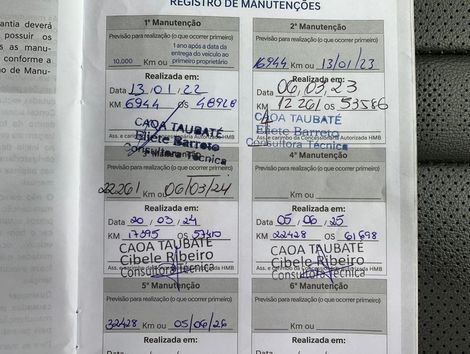 REGISTRO DE MANUTENÇÕES
antia deverá
possuir os
as manu-
conforme a
de Manu-
1ª Manutenção
Previsão para realização (o que ocorrer primeiro)
10.000 Km ou
1 ano após a data da
entrega do veículo ao
primeiro proprietário
Realizada em:
Data 13/01/22
KM 6944 OS 48928
CAOA TAUBATÉ
Eliete Barreto
Consultora Técnica
2ª Manutenção
Previsão para realização (o que ocorrer primeiro)
16944 Km ou 13/01/23
Realizada em:
Data 06/03/23
KM 12261 OS 53586
CAOA TAUBATÉ
Eliete Barreto
Ass. e carimbo da Concessionária Autorizada HMB
Consultora Técnica
3ª Manutenção
Previsão para realização (o que ocorrer primeiro)
22261 Km ou 06/03/24
Realizada em:
Data 20/03/24
KM 17595 OS 57410
CAOA TAUBATÉ
Cibele Ribeiro
Consultora Técnica
4ª Manutenção
Previsão para realização (o que ocorrer primeiro)
Km ou
Realizada em:
Data 05/06/25
KM 22428 OS 61698
CAOA TAUBATÉ
Cibele Ribeiro
Consultora Técnica
5ª Manutenção
Previsão para realização (o que ocorrer primeiro)
32428 Km ou 05/06/26
Realizada em:
6ª Manutenção
Previsão para realização (o que ocorrer primeiro)
Km ou
Realizada em: